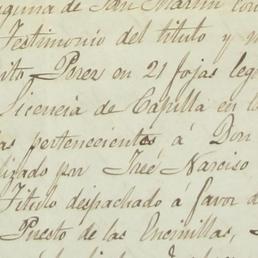 laguna de San Martin con
Testimonio del titulo y
Perez en 21 fojas leg
Licencia de Capilla en l
as pertenecientes á Don
lizado por José Narciso
Titulo despachado á favor d
Puesto de las Encinillas,